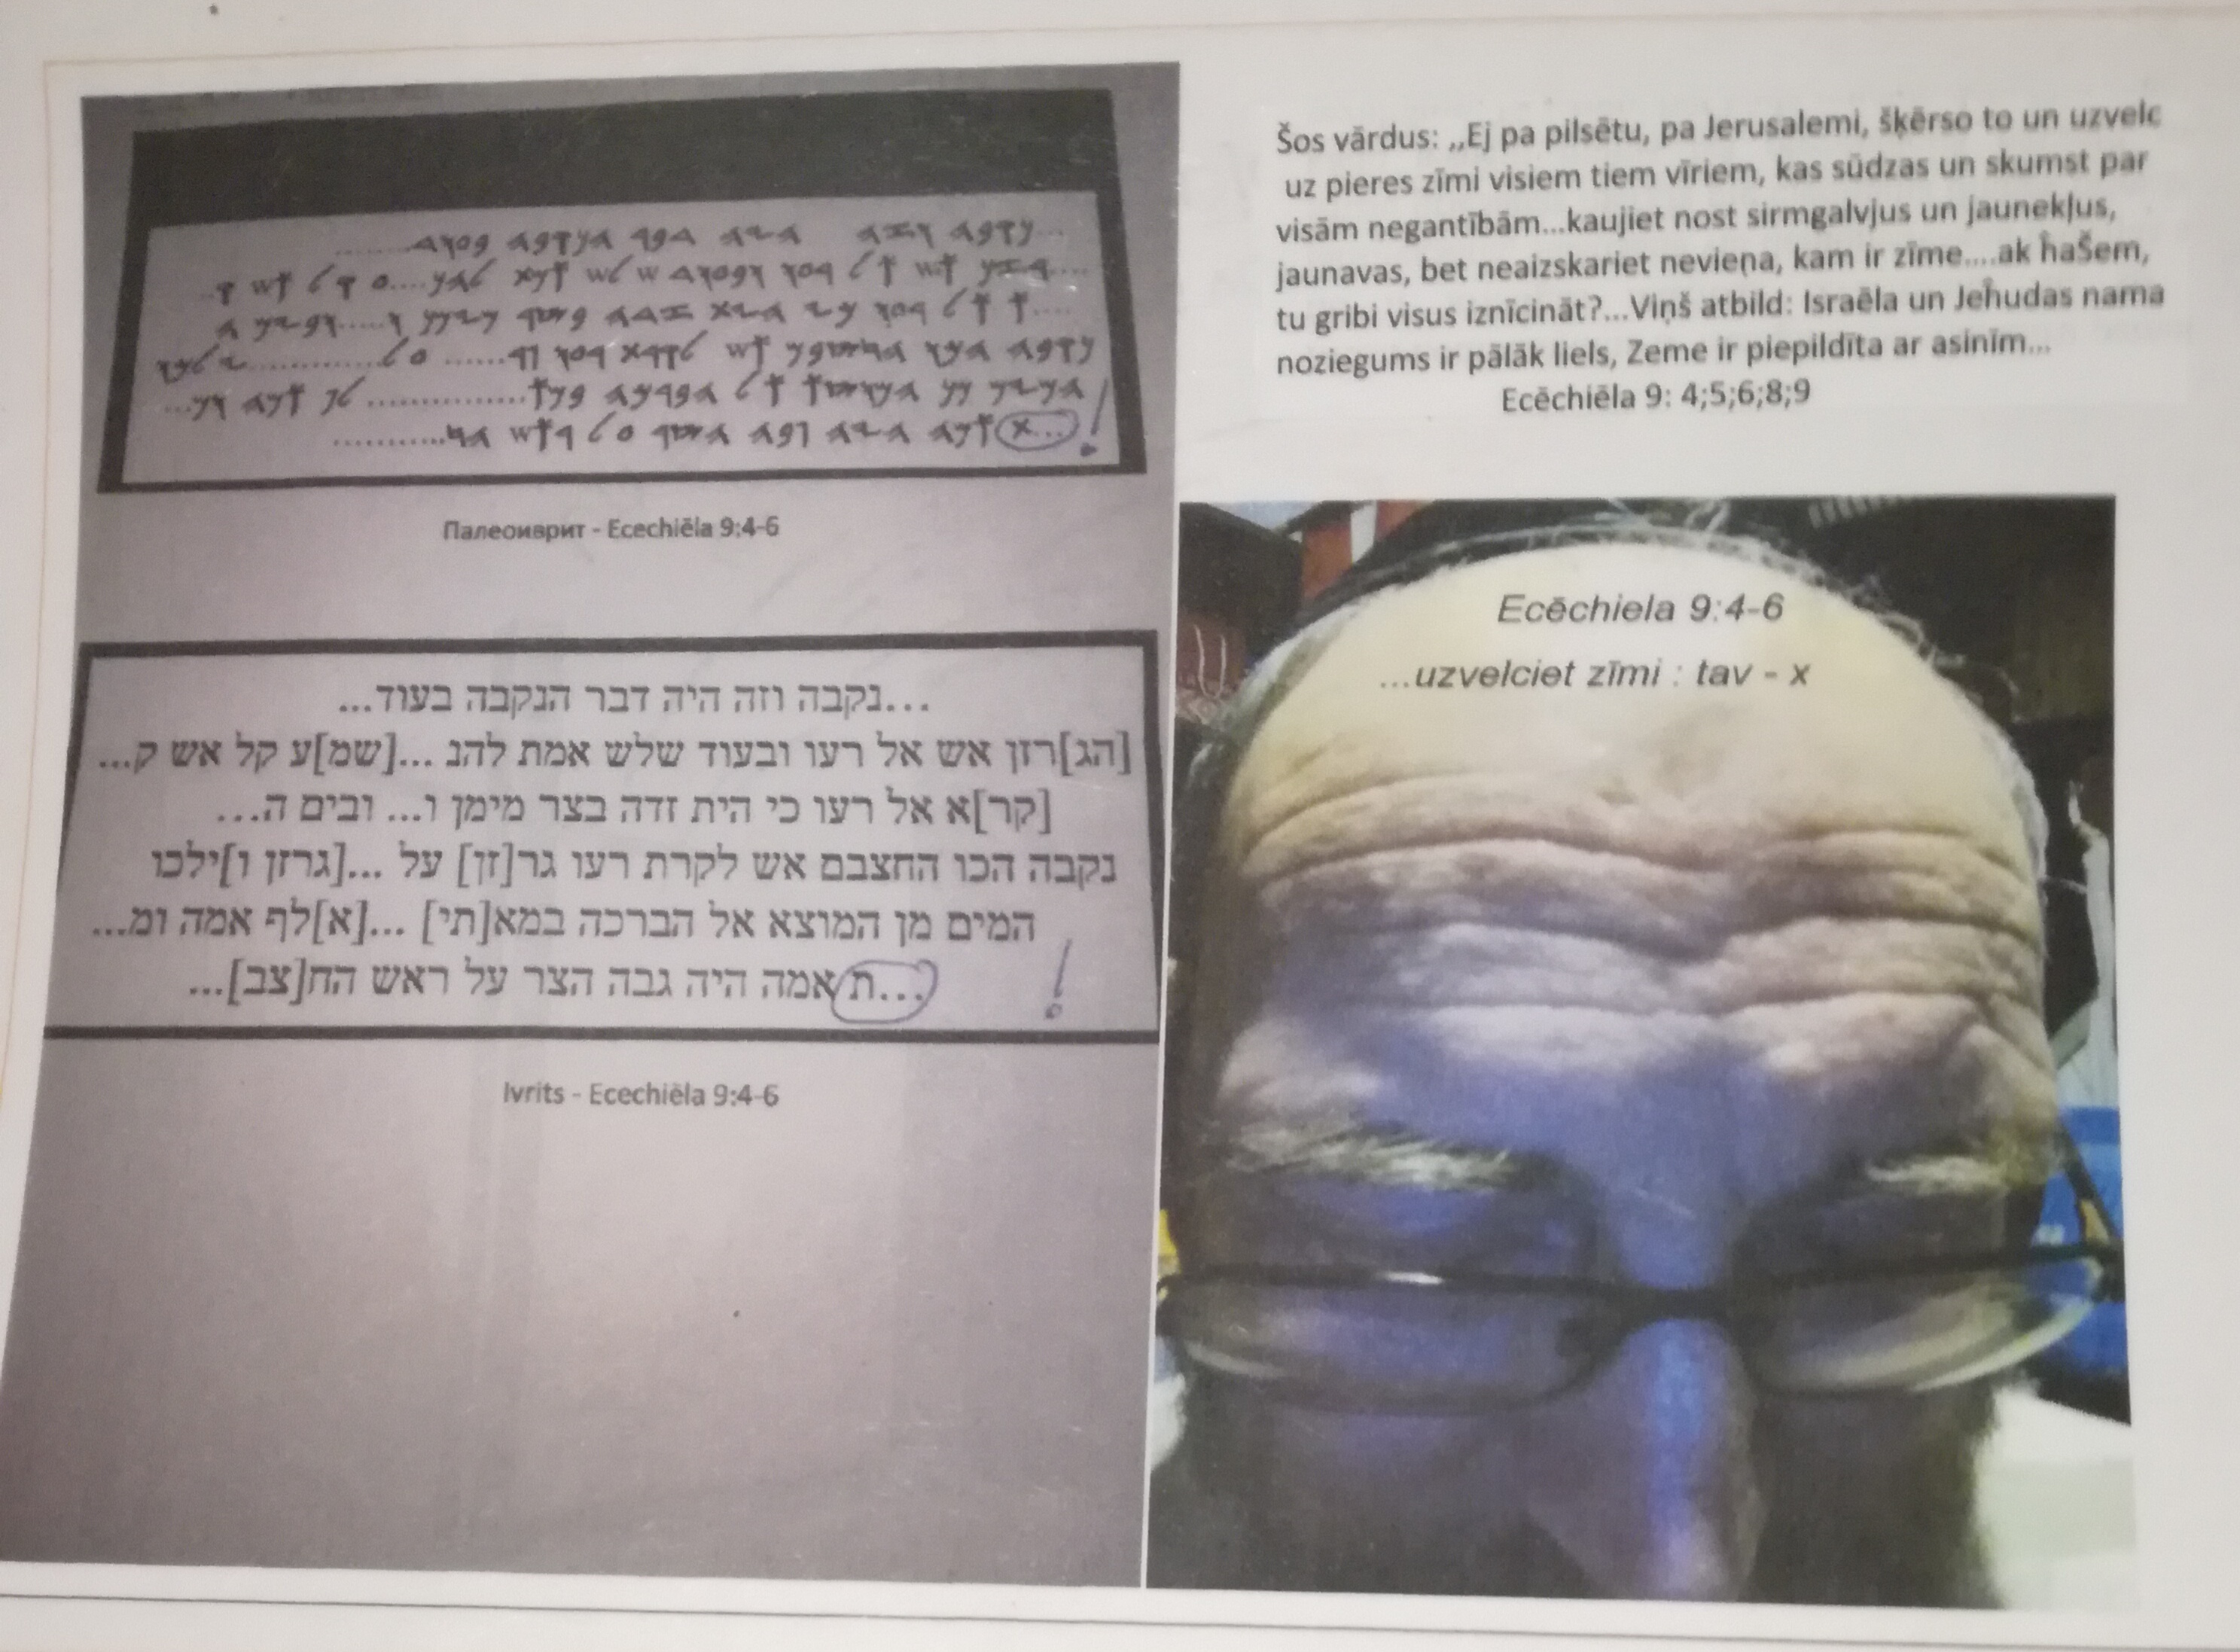 Палеоиврит - Ecechiēla 9:4-6
...נקבה וזה היה דבר הנקבה בעוד...
[הג]רזן אש אל רעו ובעוד שלש אמת להנ ...[שמ]ע קל אש ק...
[קר]א אל רעו כי הית זדה בצר מימן ו... ובים ה...
נקבה הכו החצבם אש לקרת רעו גר[זן] על ...[גרזן ו]ילכו
המים מן המוצא אל הברכה במא[תי] ...[א]לף אמה ומ...
...ת אמה היה גבה הצר על ראש הח[צב]...
!
Ivrits - Ecechiēla 9:4-6
Šos vārdus: ,,Ej pa pilsētu, pa Jerusalemi, šķērso to un uzvelc
uz pieres zīmi visiem tiem vīriem, kas sūdzas un skumst par
visām negantībām...kaujiet nost sirmgalvjus un jaunekļus,
jaunavas, bet neaizskariet neviena, kam ir zīme....ak ĥaŠem,
tu gribi visus iznīcināt?...Viņš atbild: Israēla un Jeĥudas nama
noziegums ir pālāk liels, Zeme ir piepildīta ar asinīm...
Ecēchiēla 9: 4;5;6;8;9
Ecēchiela 9:4-6
...uzvelciet zīmi : tav - x